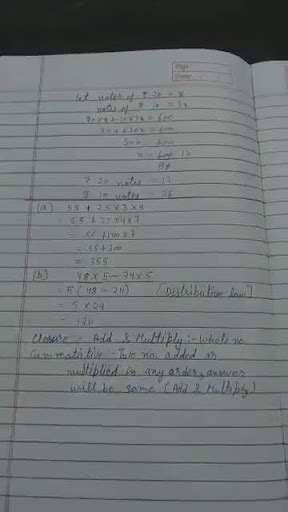 Page:
Date:
Let notes of ₹ 20 = x
notes of ₹ 10 = 3x
20 × x + 10 × 3x = 600
20x + 30x = 600
50x = 600
x = 12
₹ 20 notes = 12
₹ 10 notes = 36
(a) 55 + 25 × 3 × 4
= 55 + 25 × 4 × 3
= 55 + 100 × 3
= 55 + 300
= 355
(b) 48 × 5 - 24 × 5
= 5 (48 - 24) [Distributive law]
= 5 × 24
= 120
Closure - Add & Multiply :- Whole no
Cummutative - Two no. added or
multiplied in any order, answer
will be same (Add & Multiply)